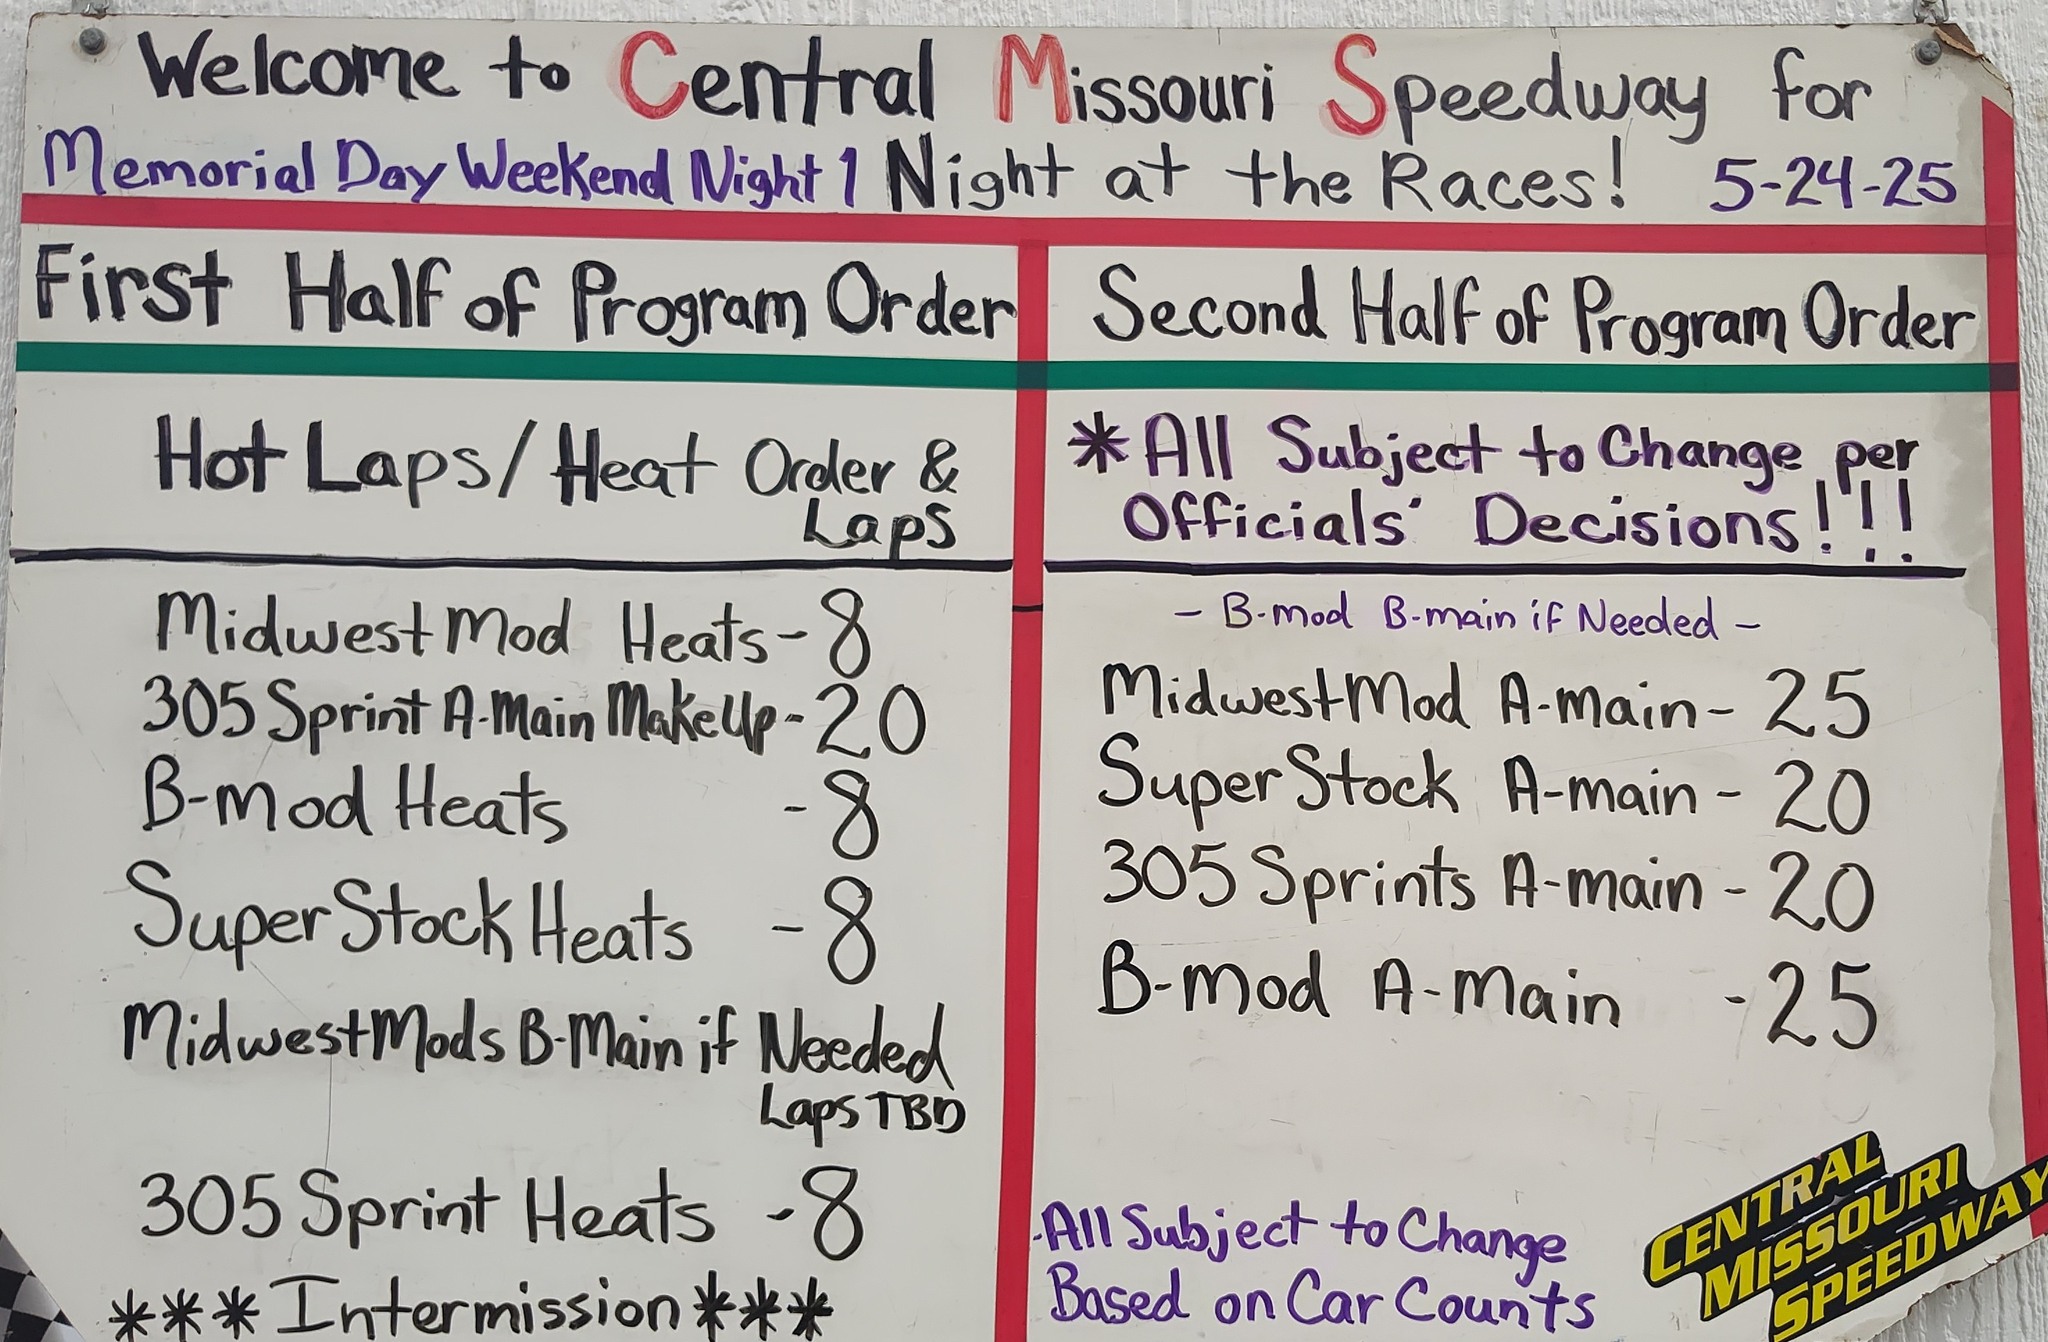 Welcome to Central Missouri Speedway for
Memorial Day Weekend Night 1 Night at the Races! 5-24-25
First Half of Program Order
Hot Laps/Heat Order &
Laps
Midwest Mod Heats - 8
305 Sprint A-Main MakeUp - 20
B-mod Heats - 8
Super Stock Heats - 8
Midwest Mods B-Main if Needed
Laps TBD
305 Sprint Heats - 8
*** Intermission ***
Second Half of Program Order
*All Subject to Change per
Officials' Decisions!!!
- B-mod B-main if Needed -
Midwest Mod A-main - 25
Super Stock A-main - 20
305 Sprints A-main - 20
B-mod A-Main - 25
-All Subject to Change
Based on Car Counts
CENTRAL
MISSOURI
SPEEDWAY